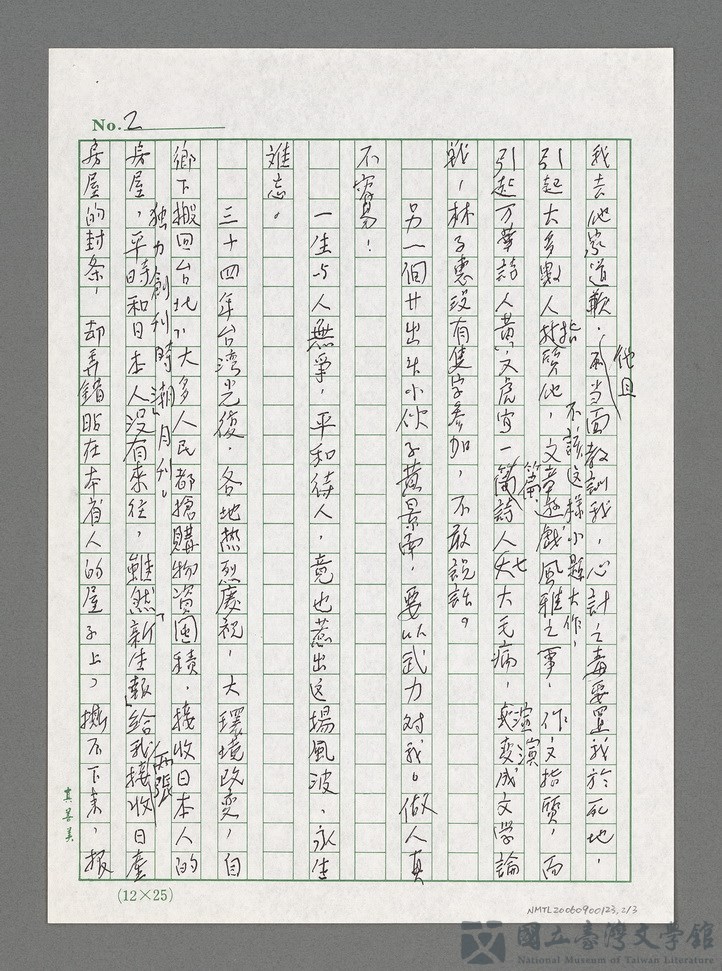 No. 2
我去他家道歉，他且当面教訓我，心計之毒要置我於死地，
引起大多數人指責他，不該这樣小題大作，文章遊戲風雅之事，作文指質，而
引起万華詩人黃文虎宙一篇，詩人七大毛病，渲演変成文学論
戰，林子惠沒有隻字参加，不敢說話。
另一個廿出头小伙子黃景南，要以武力对我。做人真
不容易！
一生与人無爭，平和待人，竟也惹出这場風波，永生
难忘。
三十四年台湾光復，各地热烈慶祝，大環境改変，自
鄉下搬回台北，大多人民都搶購物資囤積，接收日本人的
独力創刊「時潮」月刊。
房屋，平時和日本人没有來往，雖然「新生報」給我兩張接收日產
房屋的封条，却弄錯貼在本省人的屋子上，撕不下來，报
其昌美
(12×25)
NMTL20060900123, 2/3
國立臺灣文學館
National Museum of Taiwan Literature